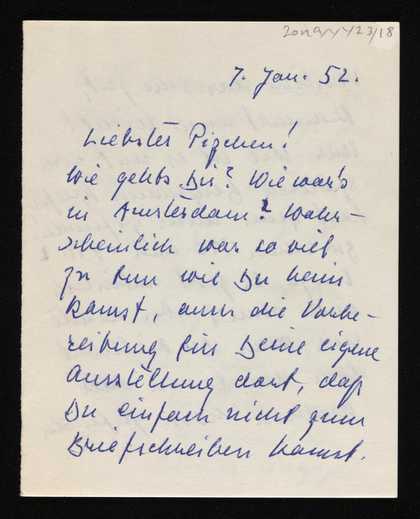 7. Jan. 52.
Liebstes Pizchen!
Wie gehts Dir? Wie war's
in Amsterdam? Wahr-
scheinlich war so viel
zu tun wie Du heim
kamst, auch die Vorbe-
reibung für Deine eigene
Ausstellung dort, daß
Du einfach nicht zum
Briefschreiben kamst.